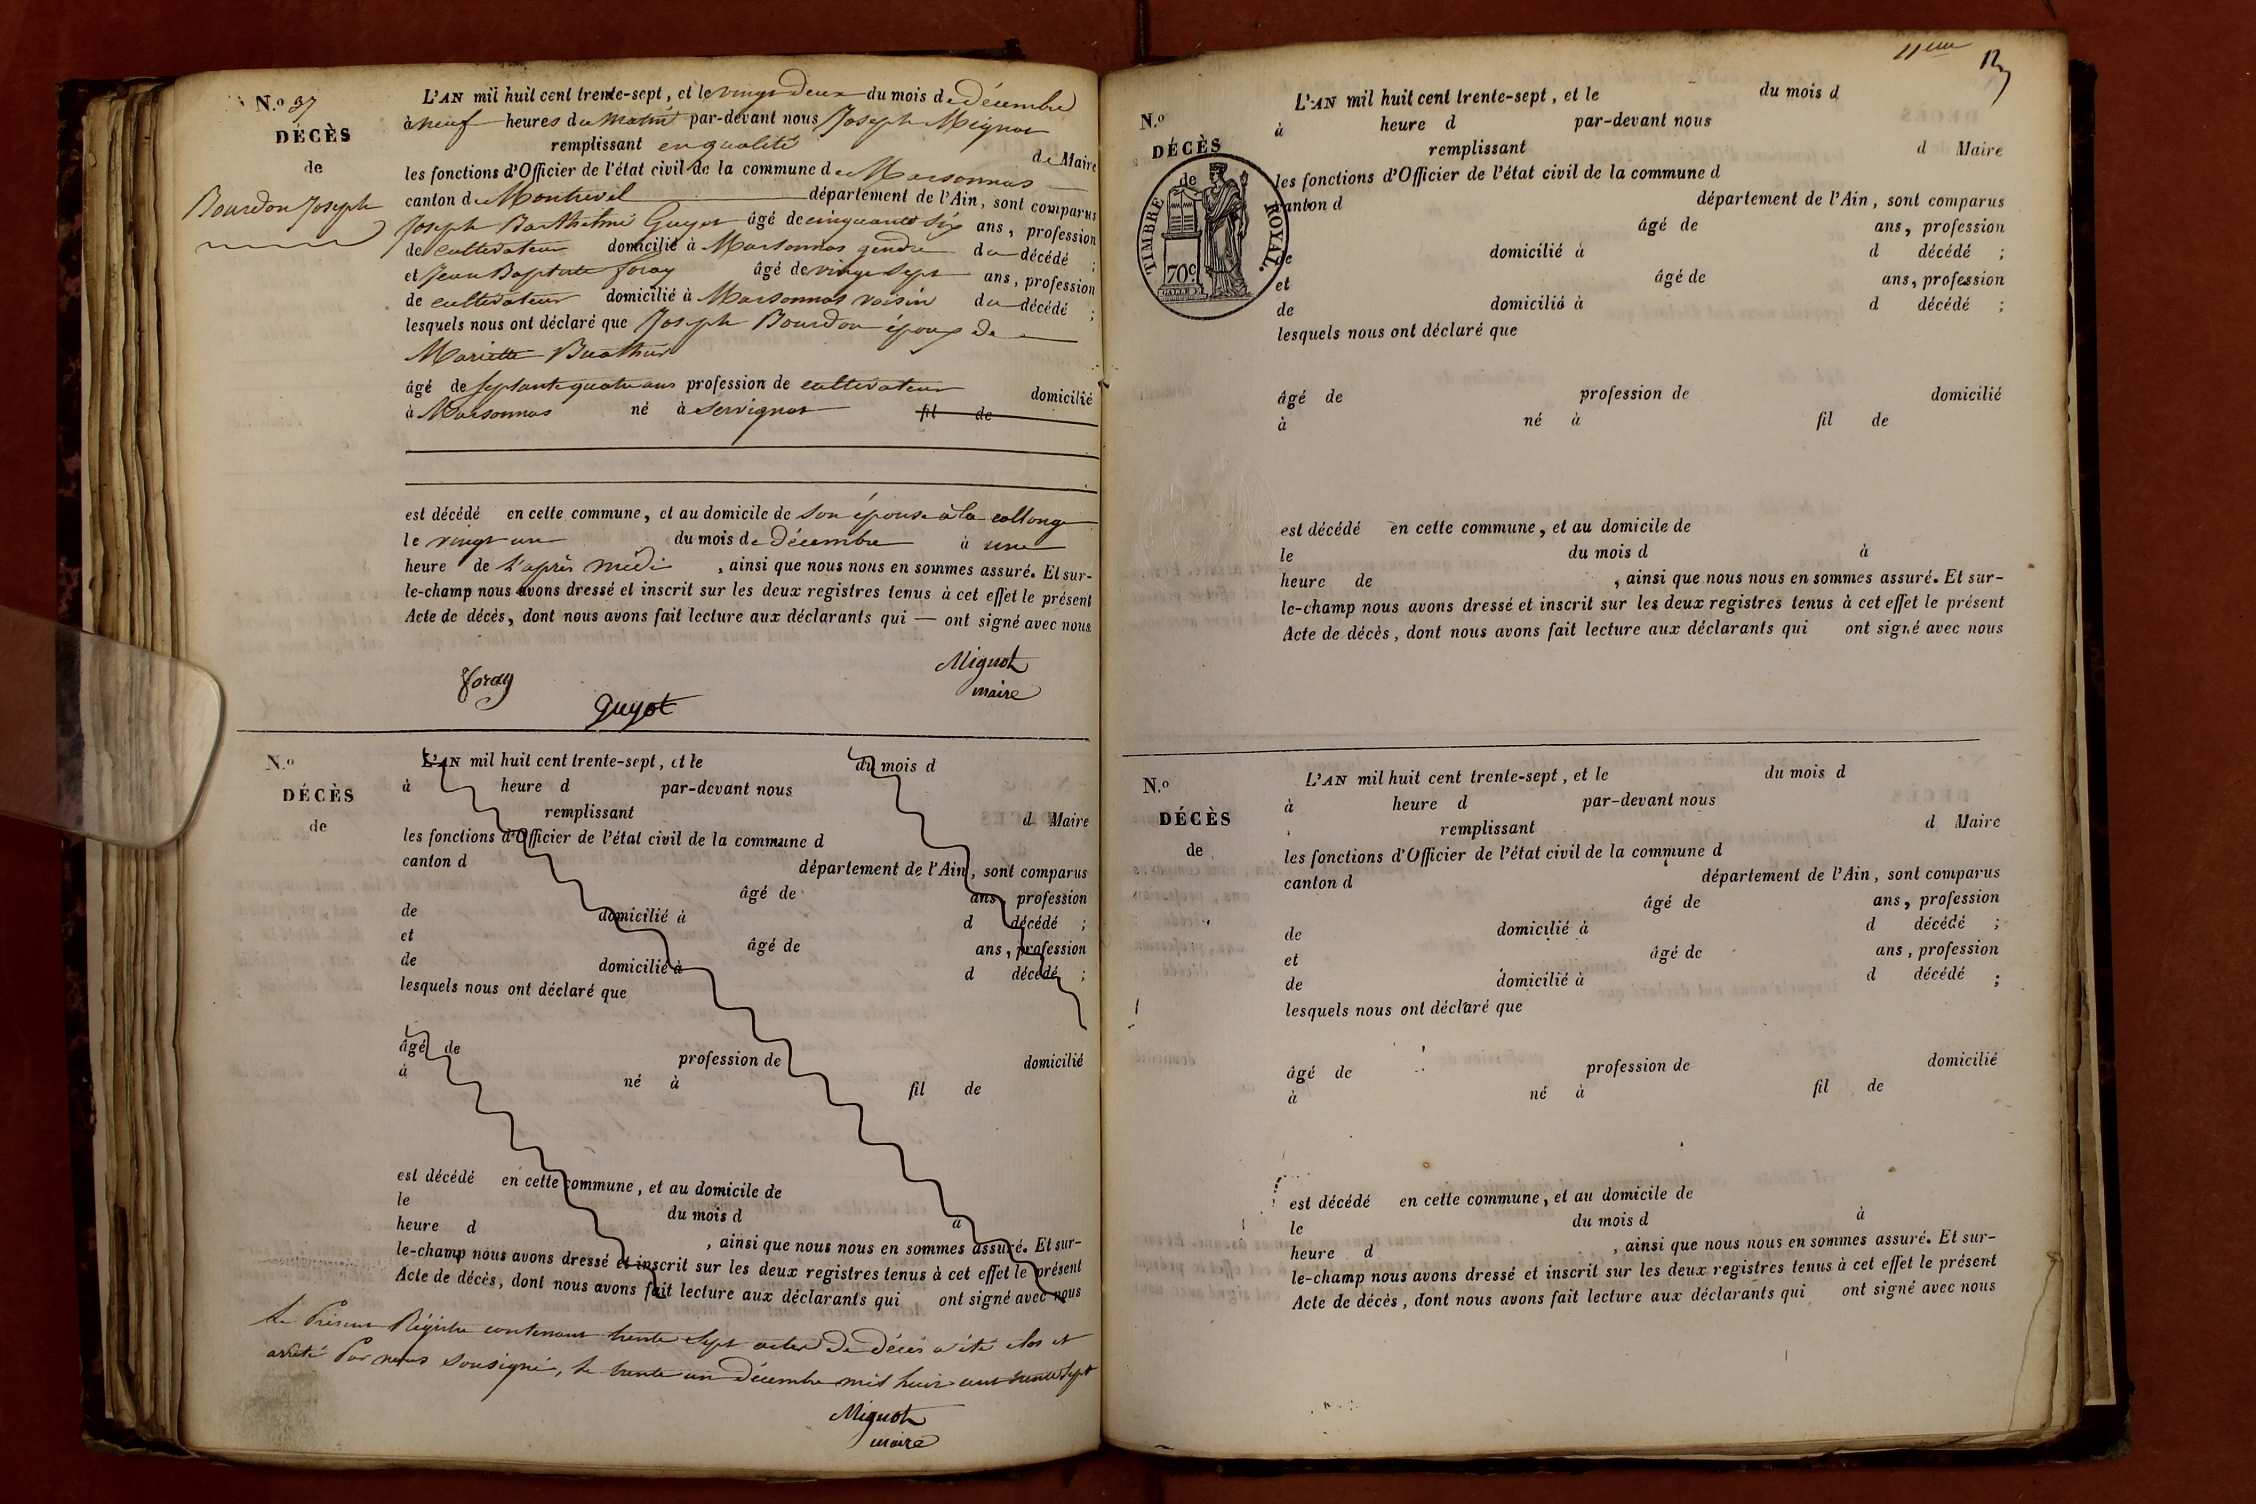 N.º 37
DÉCÈS
de
Bourdon Joseph
L'AN mil huit cent trente-sept, et le vingt deux du mois de Décembre
à neuf heures du matin par-devant nous Joseph Mignot
remplissant en qualité de Maire
les fonctions d'Officier de l'état civil de la commune de Marsonnas
canton de Montrevel département de l'Ain, sont comparus
Joseph Barthelmé Guyot âgé de cinquante six ans, profession
de cultivateur domicilié à Marsonnas gendre du décédé ;
et Jean Baptiste foray âgé de vingt sept ans, profession
de cultivateur domicilié à Marsonnas voisin du décédé ;
lesquels nous ont déclaré que Joseph Bourdon époux de
Mariette
âgé de septante quatre ans profession de cultivateur domicilié
à Marsonnas né à Servignat fil de
est décédé en cette commune, et au domicile de son épouse à la collonge
le vingt un du mois de Décembre à une
heure de l'après midi , ainsi que nous nous en sommes assuré. Et sur-
le-champ nous avons dressé et inscrit sur les deux registres tenus à cet effet le présent
Acte de décès, dont nous avons fait lecture aux déclarants qui — ont signé avec nous
Mignot
maire
foray
guyot
N.º
DÉCÈS
de
L'AN mil huit cent trente-sept, et le du mois d
à heure d par-devant nous
remplissant d Maire
les fonctions d'Officier de l'état civil de la commune d
canton d département de l'Ain, sont comparus
âgé de ans, profession
de domicilié à d décédé ;
et âgé de ans, profession
de domicilié à d décédé ;
lesquels nous ont déclaré que
âgé de profession de domicilié
à né à fil de
est décédé en cette commune, et au domicile de
le du mois d à
heure d , ainsi que nous nous en sommes assuré. Et sur-
le-champ nous avons dressé et inscrit sur les deux registres tenus à cet effet le présent
Acte de décès, dont nous avons fait lecture aux déclarants qui ont signé avec nous
Le Présent Régistre contenant trente sept actes de Décès a été clos et
arrêté par nous soussigné, le trente un Décembre mil huit cent trente sept
Mignot
maire
11ème
12
N.º
DÉCÈS
de
TIMBRE ROYAL.
70c
L'AN mil huit cent trente-sept, et le du mois d
à heure d par-devant nous
remplissant d Maire
les fonctions d'Officier de l'état civil de la commune d
canton d département de l'Ain, sont comparus
âgé de ans, profession
de domicilié à d décédé ;
et âgé de ans, profession
de domicilié à d décédé ;
lesquels nous ont déclaré que
âgé de profession de domicilié
à né à fil de
est décédé en cette commune, et au domicile de
le du mois d à
heure de , ainsi que nous nous en sommes assuré. Et sur-
le-champ nous avons dressé et inscrit sur les deux registres tenus à cet effet le présent
Acte de décès, dont nous avons fait lecture aux déclarants qui ont signé avec nous
N.º
DÉCÈS
de
L'AN mil huit cent trente-sept, et le du mois d
à heure d par-devant nous
remplissant d Maire
les fonctions d'Officier de l'état civil de la commune d
canton d département de l'Ain, sont comparus
âgé de ans, profession
de domicilié à d décédé ;
et âgé de ans, profession
de domicilié à d décédé ;
lesquels nous ont déclaré que
âgé de profession de domicilié
à né à fil de
est décédé en cette commune, et au domicile de
le du mois d à
heure d , ainsi que nous nous en sommes assuré. Et sur-
le-champ nous avons dressé et inscrit sur les deux registres tenus à cet effet le présent
Acte de décès, dont nous avons fait lecture aux déclarants qui ont signé avec nous